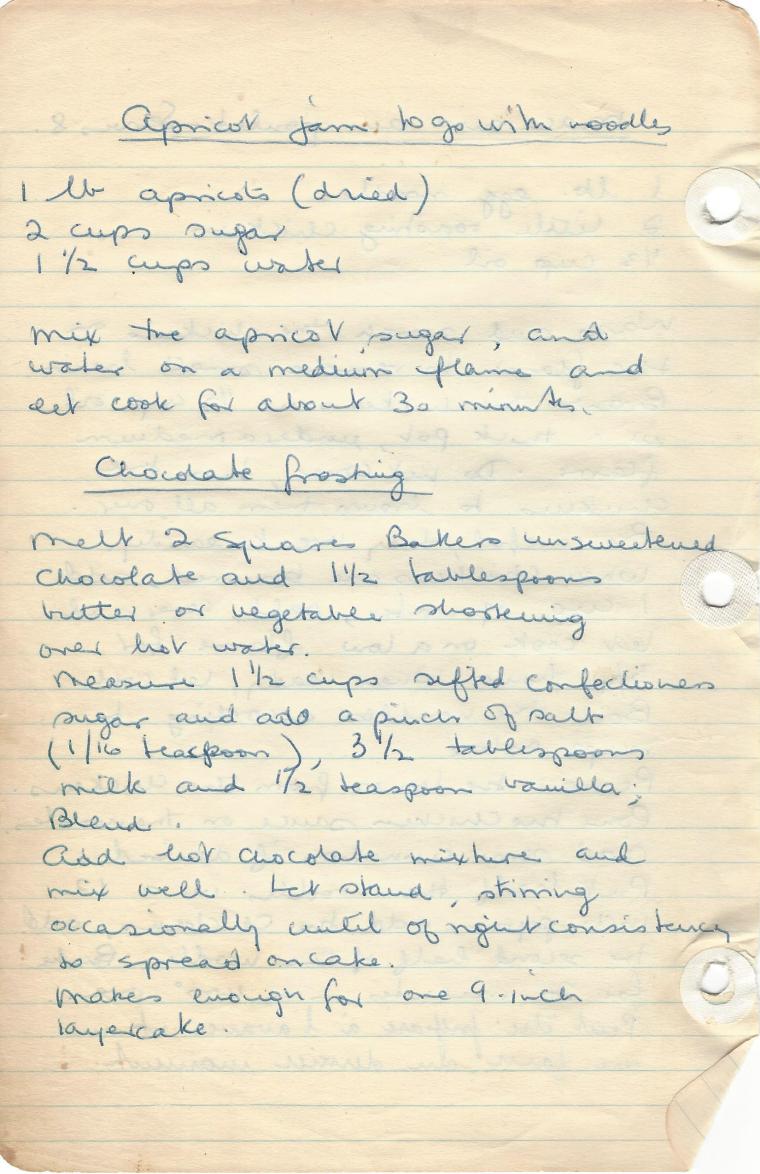 Apricot jam to go with noodles
1 lb apricots (dried)
2 cups sugar
1 1/2 cups water
Mix the apricot, sugar, and
water on a medium flame and
let cook for about 30 minutes.
Chocolate frosting
Melt 2 Squares Bakers unsweetened
chocolate and 1 1/2 tablespoons
butter or vegetable shortening
over hot water.
Measure 1 1/2 cups sifted confectioners
sugar and add a pinch of salt
(1/16 teaspoon), 3 1/2 tablespoons
milk and 1/2 teaspoon vanilla;
Blend.
Add hot chocolate mixture and
mix well. Let stand, stirring
occasionally until of right consistency
to spread on cake.
Makes enough for one 9-inch
layercake.